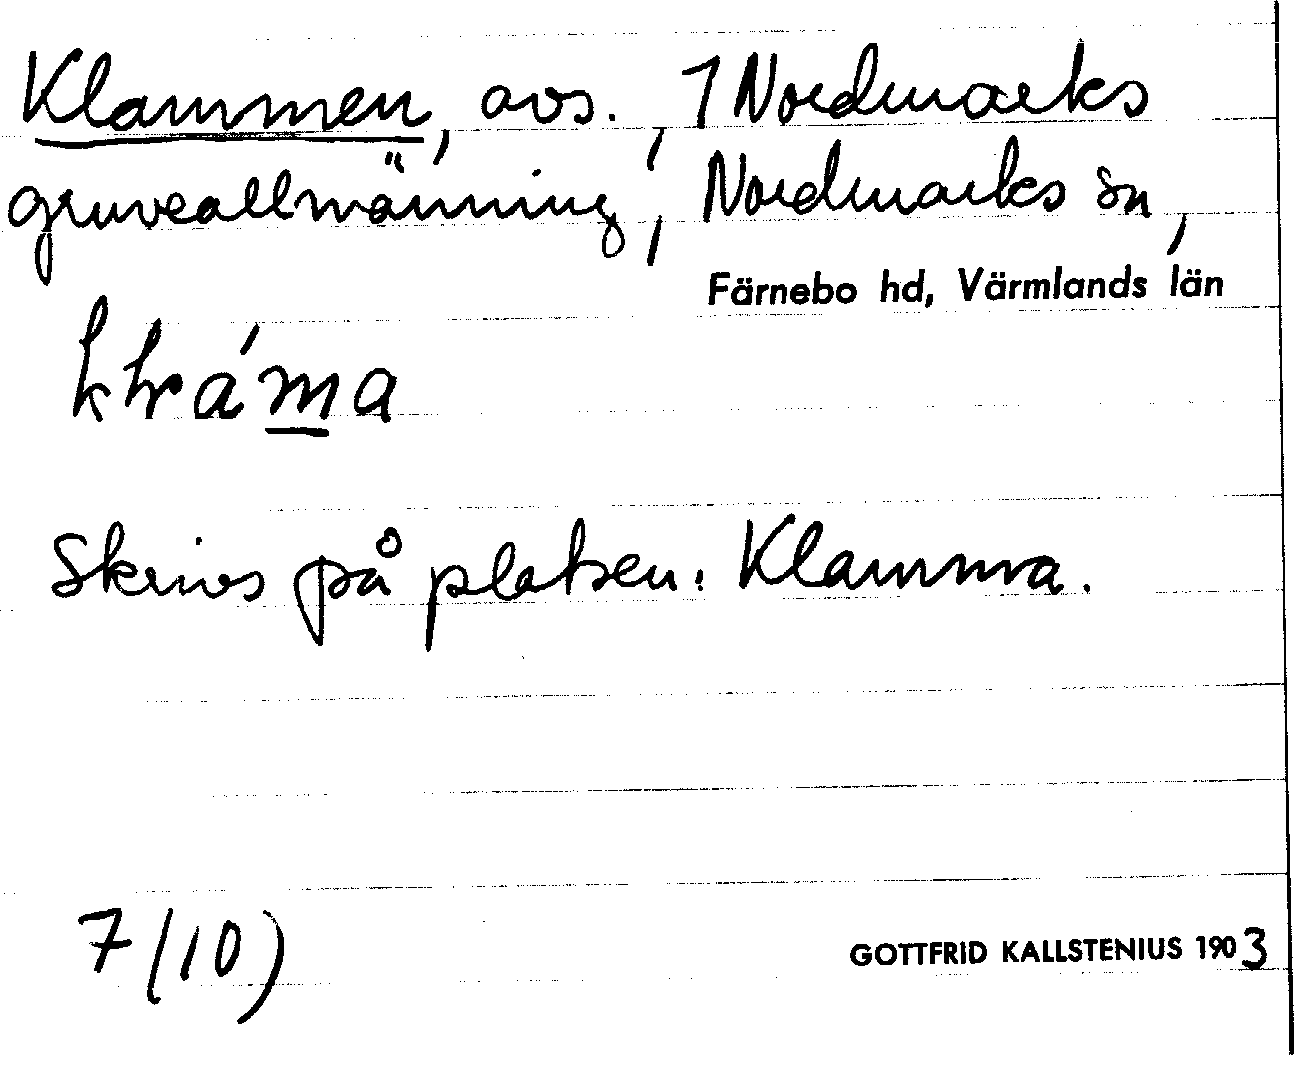 Klammen, avs., 1 Nordmarks
gruveallmänning, Nordmarks sn,
Färnebo hd, Värmlands län
Skrives på platsen: Klamma.
7/10)
GOTTFRID KALLSTENIUS 1903